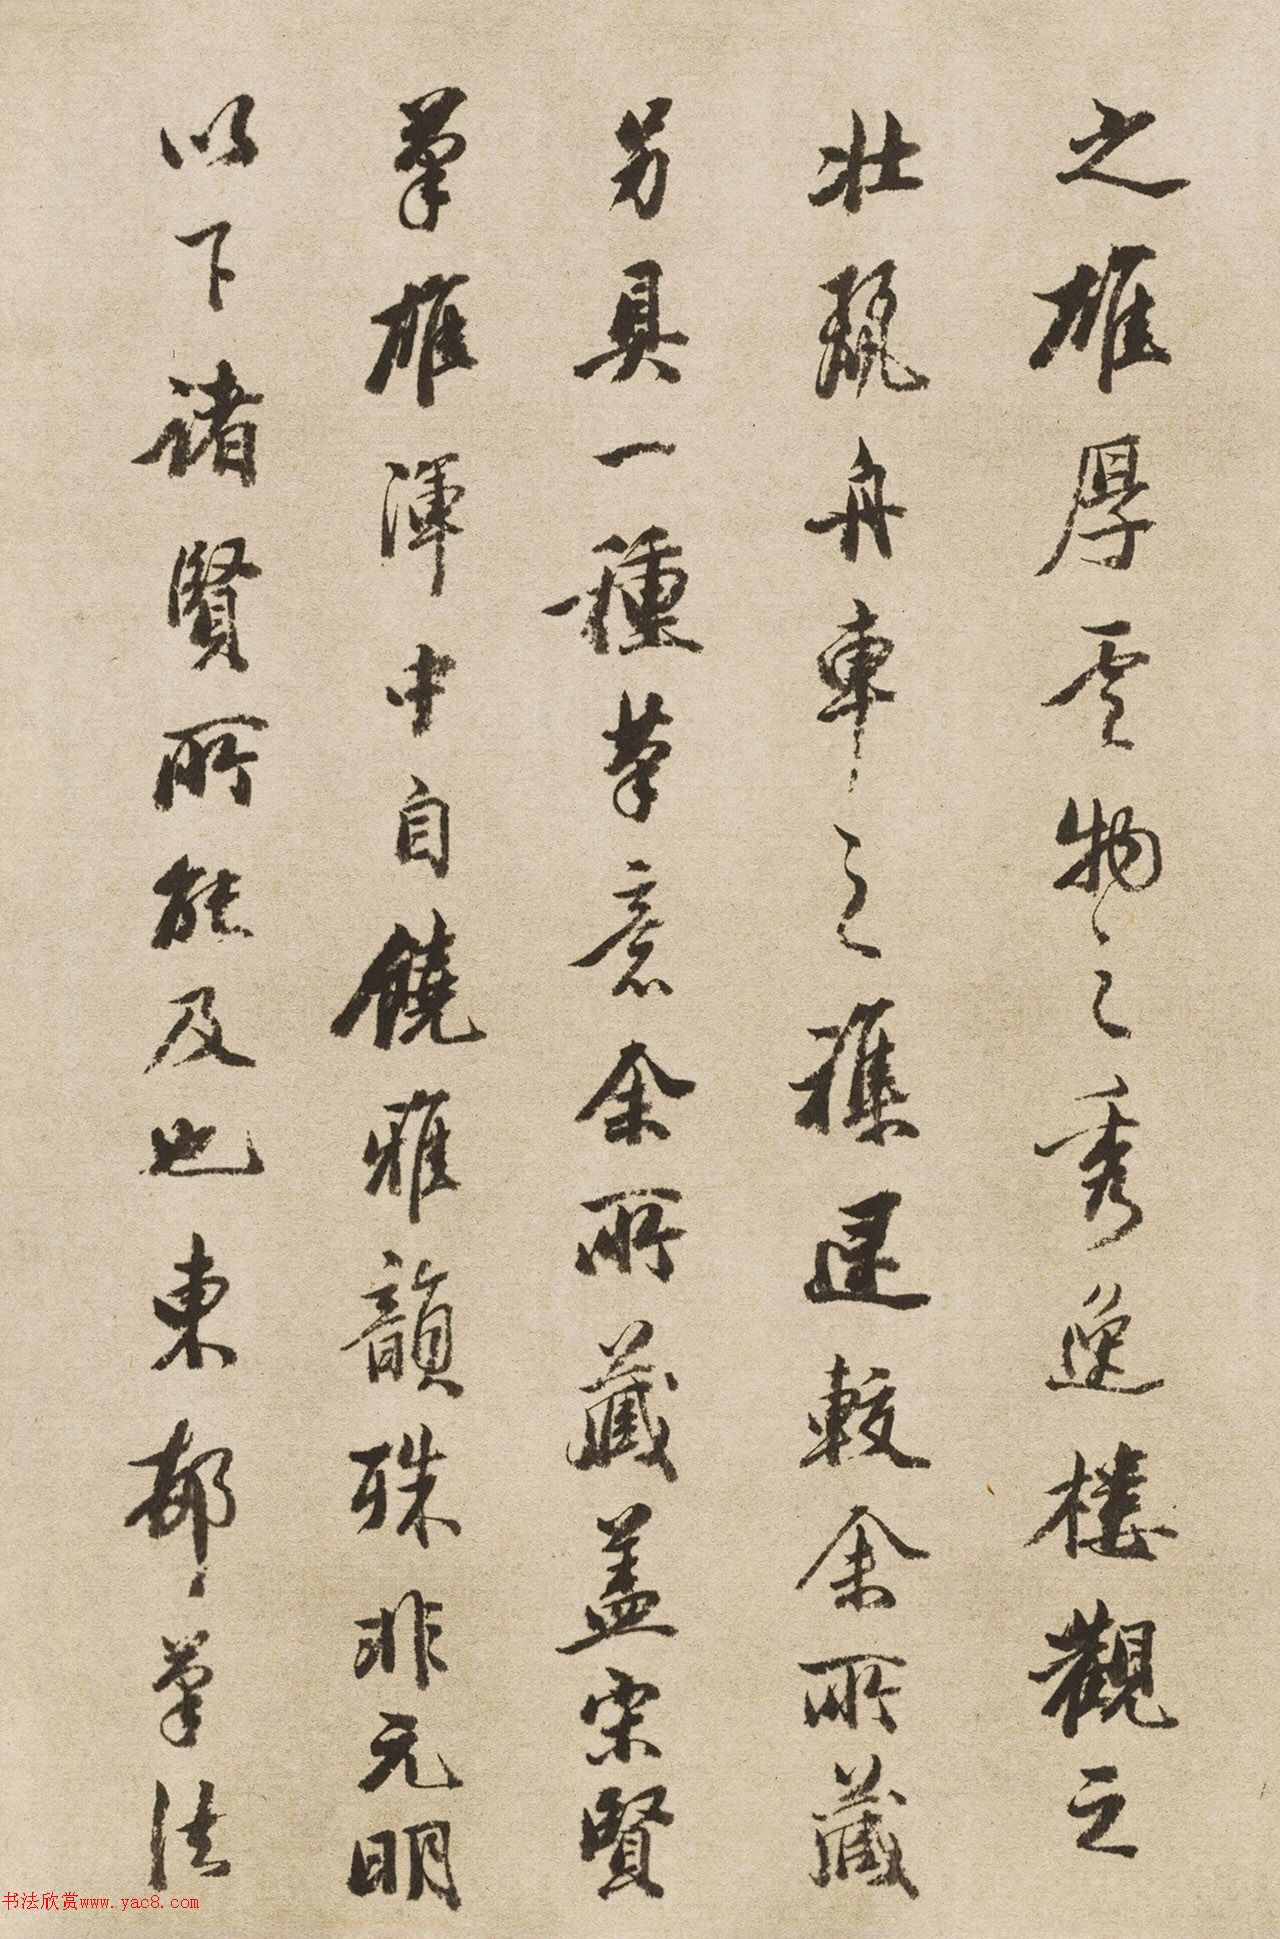 之雄厚雲物之秀逸樓觀之
壯麗舟車之穠逞較余所藏
另具一種筆意余所藏蓋宋賢
筆雄渾中自饒雅韻殊非元明
以下諸賢所能及也東邨筆法
书法欣赏www.yac8.com